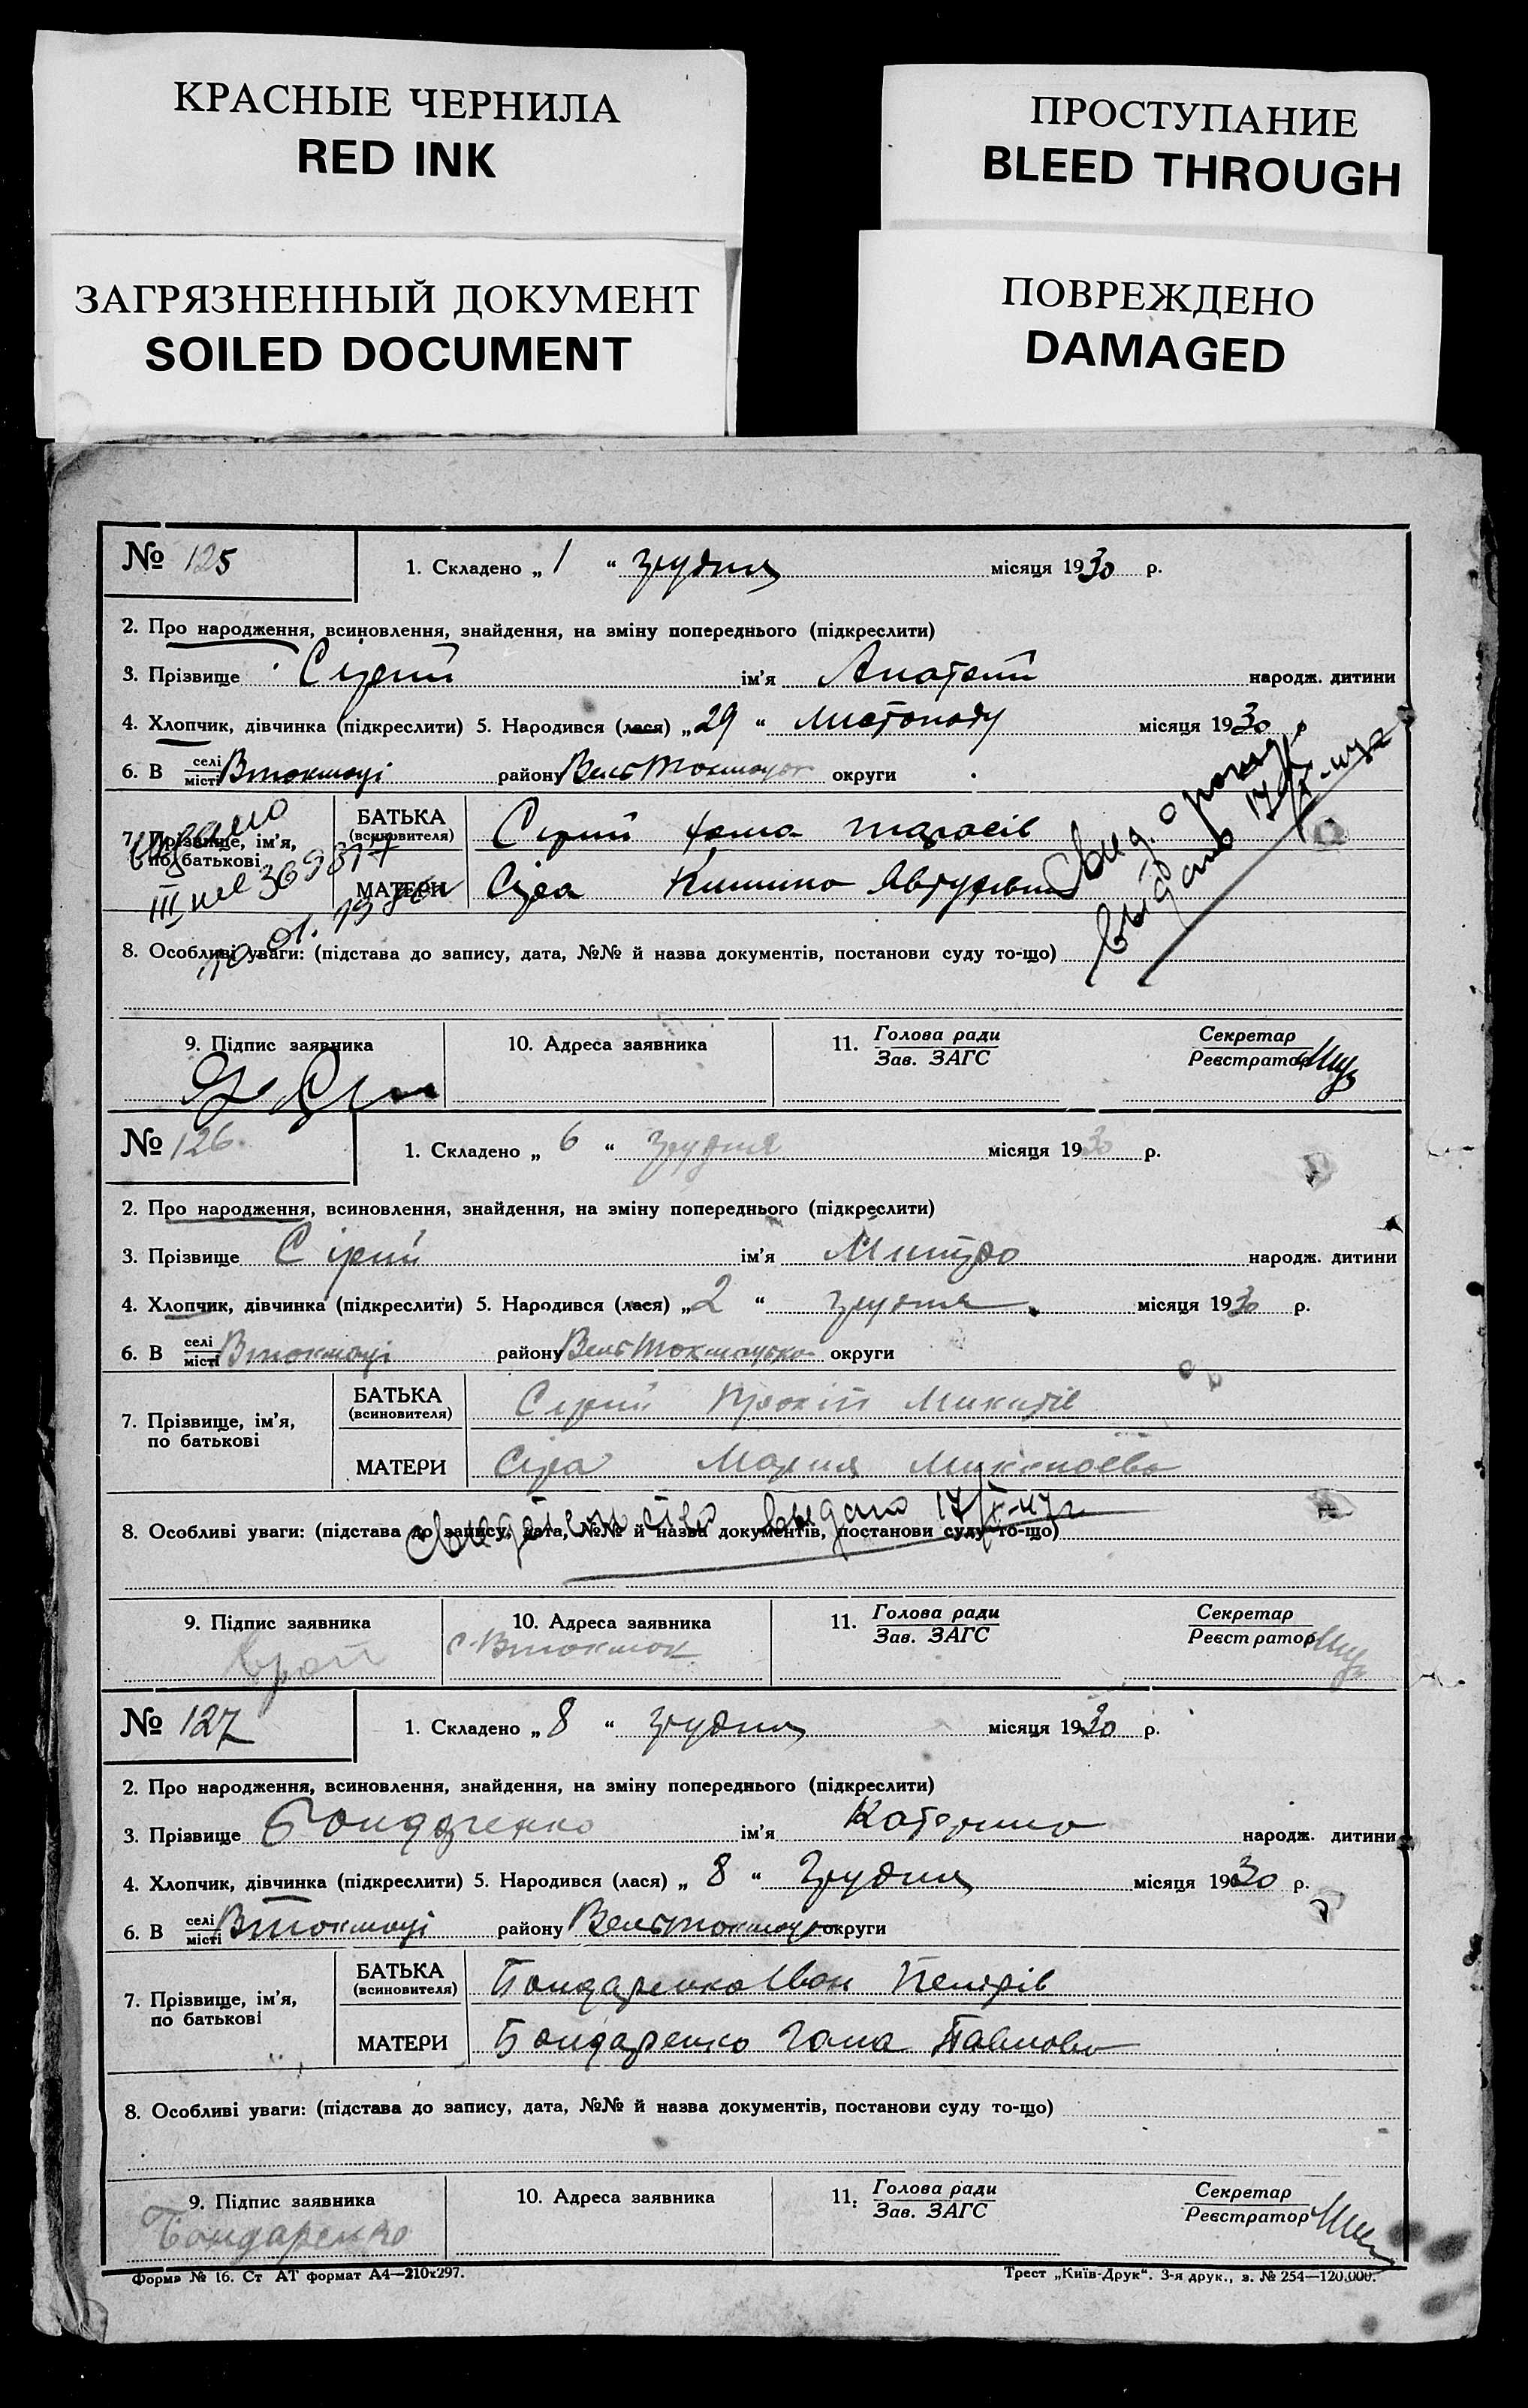 КРАСНЫЕ ЧЕРНИЛА
RED INK
ПРОСТУПАНИЕ
BLEED THROUGH
ЗАГРЯЗНЕННЫЙ ДОКУМЕНТ
SOILED DOCUMENT
ПОВРЕЖДЕНО
DAMAGED
№ 125 1. Складено „ 1 “ грудня місяця 1930 р.
2. Про народження, всиновлення, знайдення, на зміну попереднього (підкреслити)
3. Прізвище Сірий ім'я Анатолій народж. дитини
4. Хлопчик, дівчинка (підкреслити) 5. Народився (лася) „ 29 “ листопаду місяця 1930 р
6. В селі місті Втокмаці району ВелТокмацьк округи
7. Прізвище, ім'я, по батькові
БАТЬКА (всиновителя) Сірий Хома Тарасів
МАТЕРИ Сіра
видано
III 369817
Свид. о рожд.
выдано 17/
8. Особливі уваги: (підстава до запису, дата, №№ й назва документів, постанови суду то-що)
9. Підпис заявника 10. Адреса заявника 11. Голова ради Зав. ЗАГС Секретар Реєстратор
№ 126 1. Складено „ 6 “ грудня місяця 1930 р.
2. Про народження, всиновлення, знайдення, на зміну попереднього (підкреслити)
3. Прізвище Сірий ім'я Митро народж. дитини
4. Хлопчик, дівчинка (підкреслити) 5. Народився (лася) „ 2 “ грудня місяця 1930 р.
6. В селі місті Втокмаці району ВелТокмацько округи
7. Прізвище, ім'я, по батькові
БАТЬКА (всиновителя) Сірий Прокіп Микитів
МАТЕРИ Сіра Мария
Свидетельство выдано 17/
8. Особливі уваги: (підстава до запису, дата, №№ й назва документів, постанови суду то-що)
9. Підпис заявника 10. Адреса заявника 11. Голова ради Зав. ЗАГС Секретар Реєстратор
с. Втокмак
№ 127 1. Складено „ 8 “ грудня місяця 1930 р.
2. Про народження, всиновлення, знайдення, на зміну попереднього (підкреслити)
3. Прізвище Бондаренко ім'я Катерина народж. дитини
4. Хлопчик, дівчинка (підкреслити) 5. Народився (лася) „ 8 “ Грудня місяця 1930 р.
6. В селі місті Втокмаці району ВелТокмацьк округи
7. Прізвище, ім'я, по батькові
БАТЬКА (всиновителя) Бондаренко Іван Петрів
МАТЕРИ Бондаренко Гана Павлова
8. Особливі уваги: (підстава до запису, дата, №№ й назва документів, постанови суду то-що)
9. Підпис заявника 10. Адреса заявника 11. Голова ради Зав. ЗАГС Секретар Реєстратор
Бондаренко
Форма № 16. Ст АТ формат А4—210х297. Трест „Київ-Друк“. 3-я друк., з. № 254—120.000.